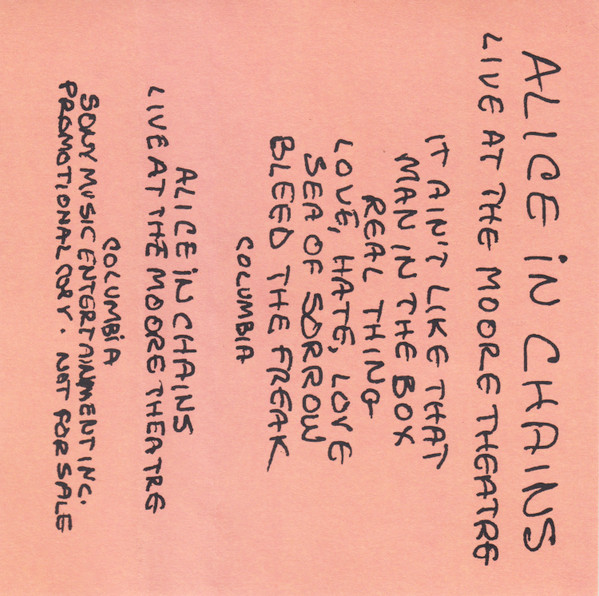 ALICE iN CHAINS
LIVE AT THE MOORE THEATRE
IT AIN'T LIKE THAT
MAN IN THE BOX
REAL THING
LOVE, HATE, LOVE
SEA OF SORROW
BLEED THE FREAK
COLUMBIA
ALICE iN CHAINS
LIVE AT THE MOORE THEATRE
COLUMBiA
SONY MUSIC ENTERTAINMENT INC.
PROMOTIONAL COPY. NOT FOR SALE